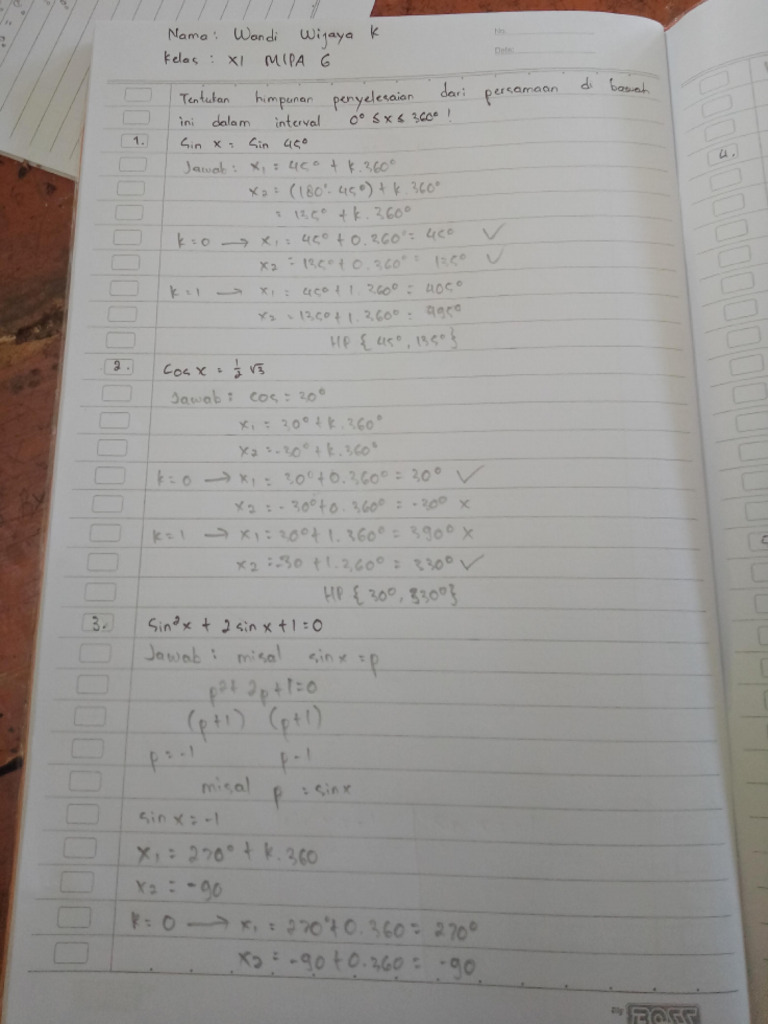 Nama : Wandi Wijaya K
Kelas : XI MIPA 6
No:
Date:
Tentukan himpunan penyelesaian dari persamaan di bawah
ini dalam interval 0° ≤ x ≤ 360° !
1. Sin x = Sin 45°
Jawab : x₁ = 45° + k.360°
x₂ = (180°-45°) + k.360°
= 135° + k.360°
k=0 → x₁ = 45° + 0.360° = 45° ✓
x₂ = 135° + 0.360° = 135° ✓
k=1 → x₁ = 45° + 1.360° = 405°
x₂ = 135° + 1.360° = 495°
HP {45°, 135°}
2. Cos x = ½ √3
Jawab : cos = 30°
x₁ = 30° + k.360°
x₂ = -30° + k.360°
k=0 → x₁ = 30° + 0.360° = 30° ✓
x₂ = -30° + 0.360° = -30° x
k=1 → x₁ = 30° + 1.360° = 390° x
x₂ = -30 + 1.360° = 330° ✓
HP {30°, 330°}
3. Sin²x + 2 sin x + 1 = 0
Jawab : misal sin x = p
p² + 2p + 1 = 0
(p+1) (p+1)
p = -1 p-1
misal p = sin x
sin x = -1
x₁ = 270° + k.360
x₂ = -90
k=0 → x₁ = 270° + 0.360 = 270°
x₂ = -90 + 0.360 = -90
By BOSS
4.